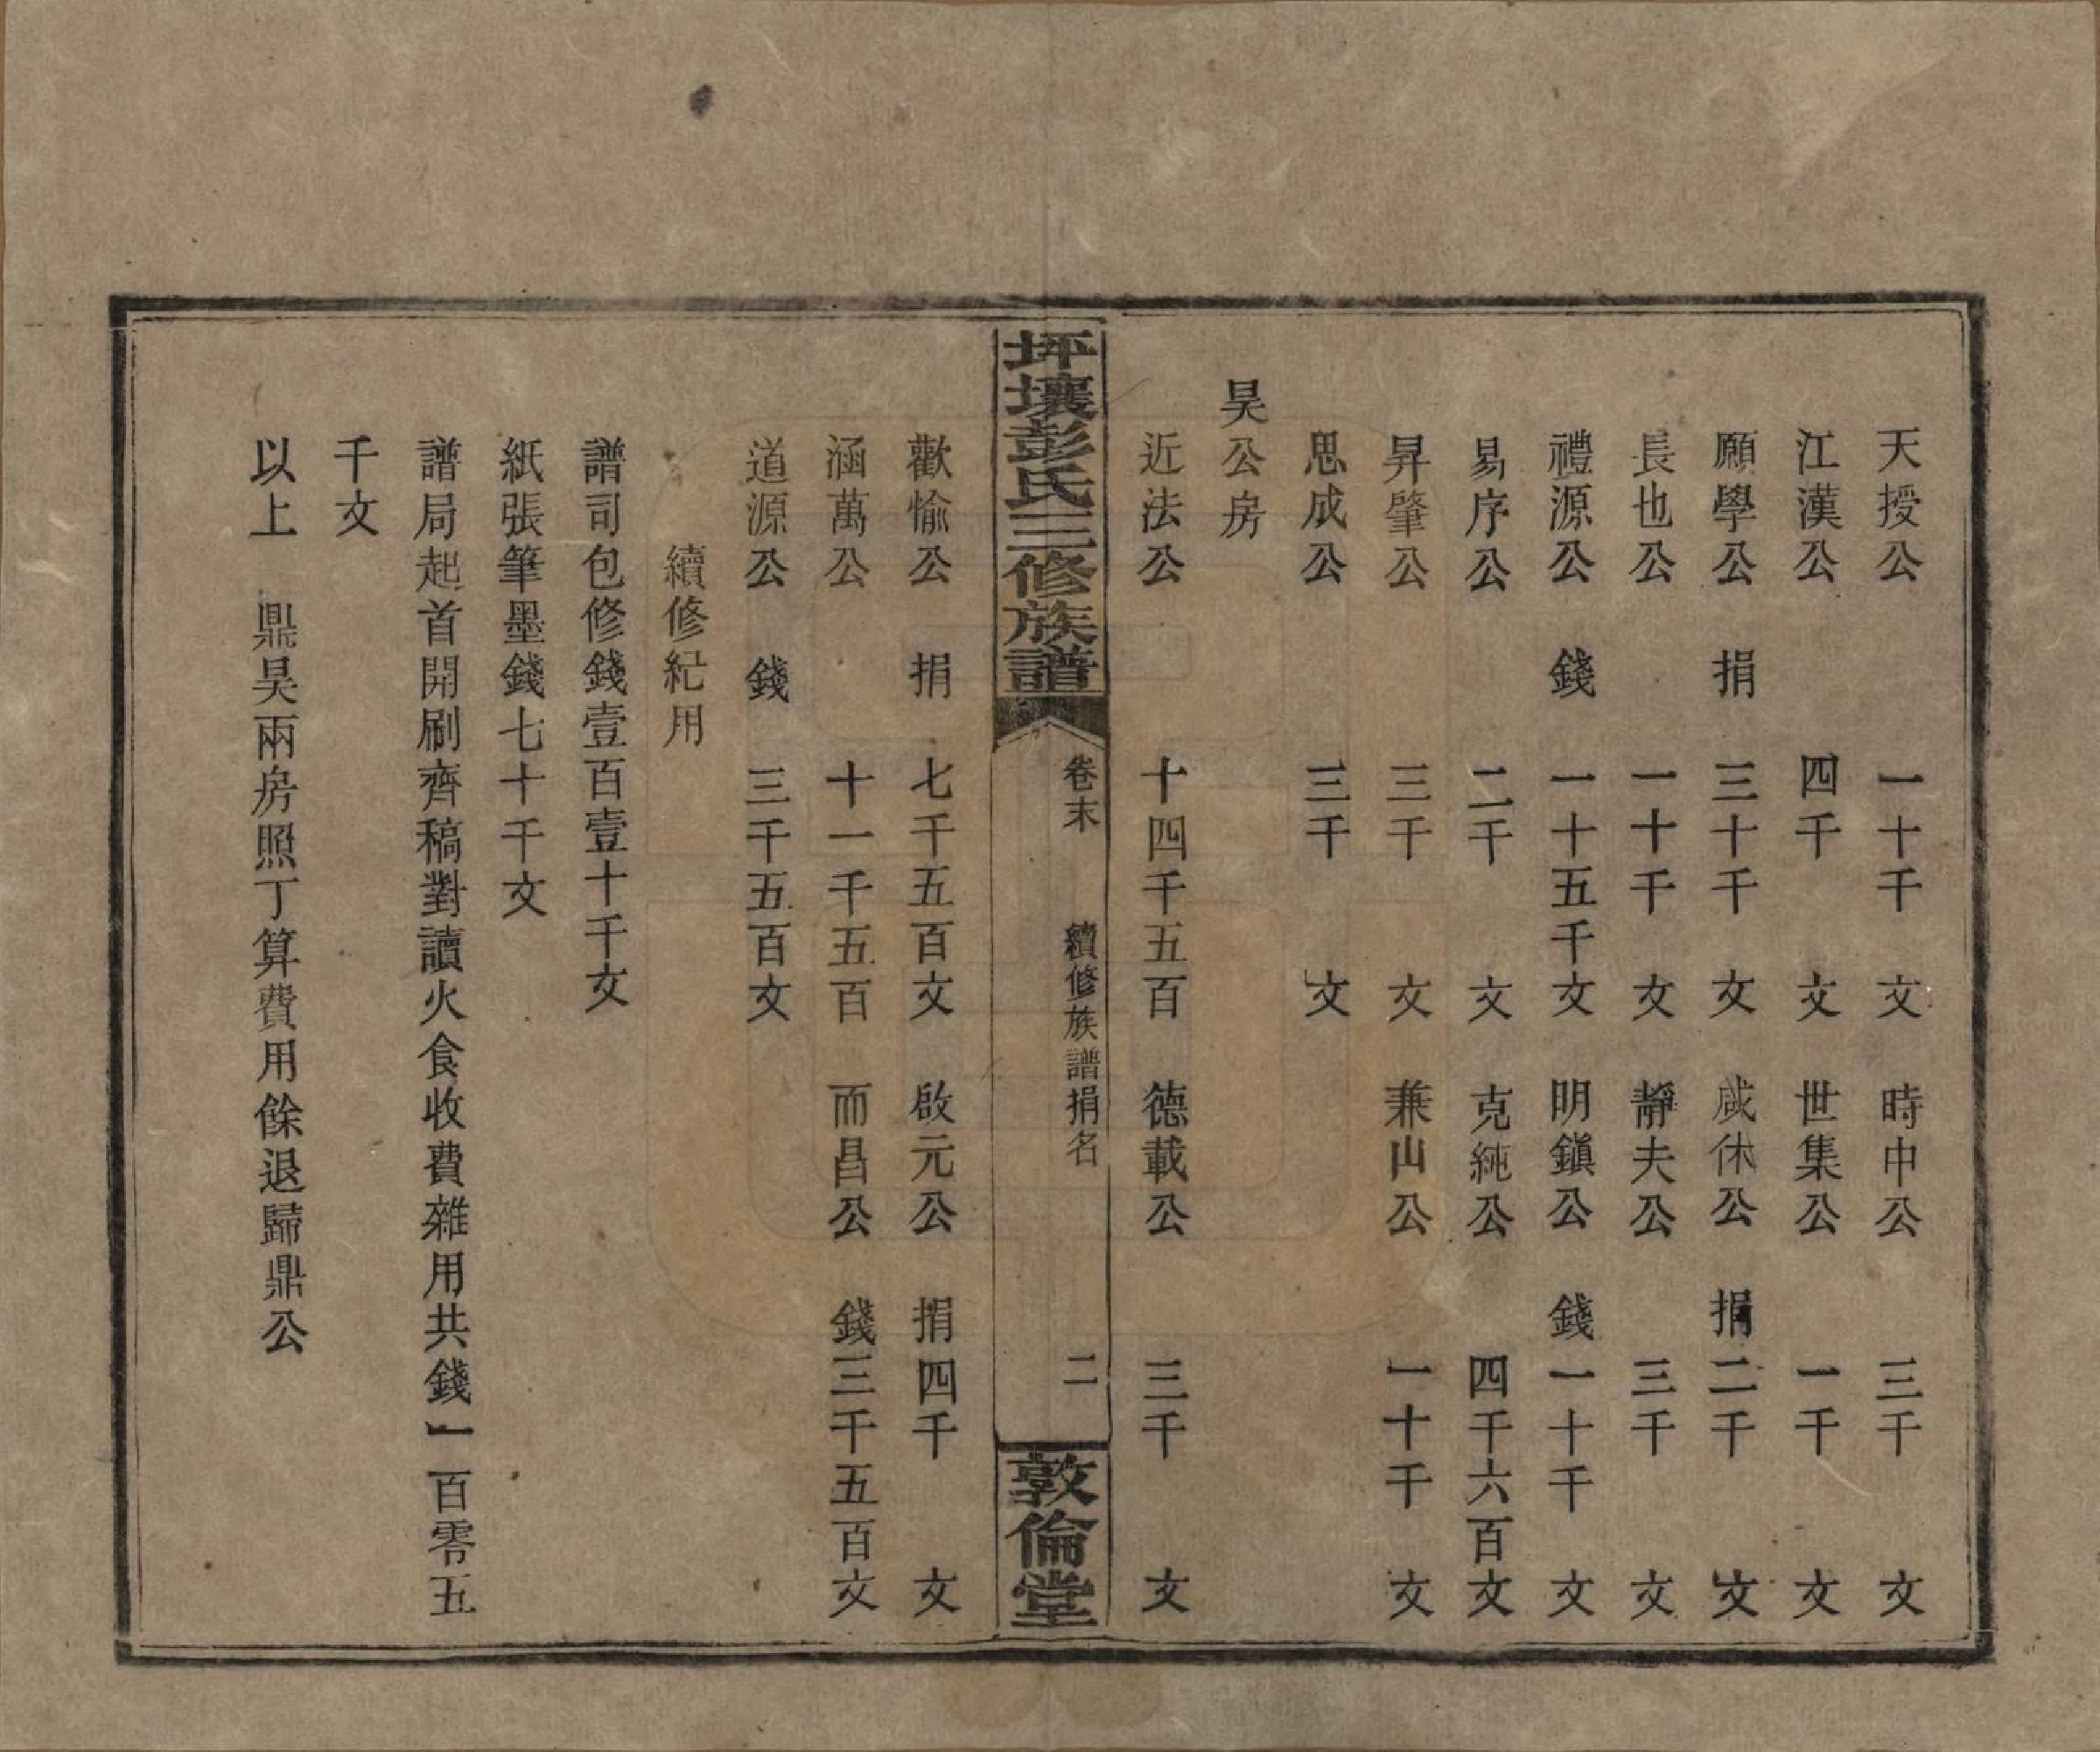 天授公 一十千 文 時中公 三千 文
江漢公 四千 文 世集公 一千 文
願學公 捐 三十千 文 咸休公 捐 二千 文
長也公 一十千 文 靜夫公 三千 文
禮源公 錢 一十五千文 明鎭公 錢 一十千 文
易序公 二千 文 克純公 四千六百文
昇肇公 三千 文 兼山公 一十千 文
思成公 三千 文
昊公房
近法公 十四千五百 德載公 三千 文
坪壤彭氏三修族譜 卷末 續修族譜捐名 二 敦倫堂
歡愉公 捐 七千五百文 啟元公 捐四千 文
涵萬公 十一千五百 而昌公 錢三千五百文
道源公 錢 三千五百文
續修紀用
譜司包修錢壹百壹十千文
紙張筆墨錢七十千文
譜局起首開刷齊稿對讀火食收費雜用共錢一百零五
千文
以上 鼎昊兩房照丁算費用餘退歸鼎公